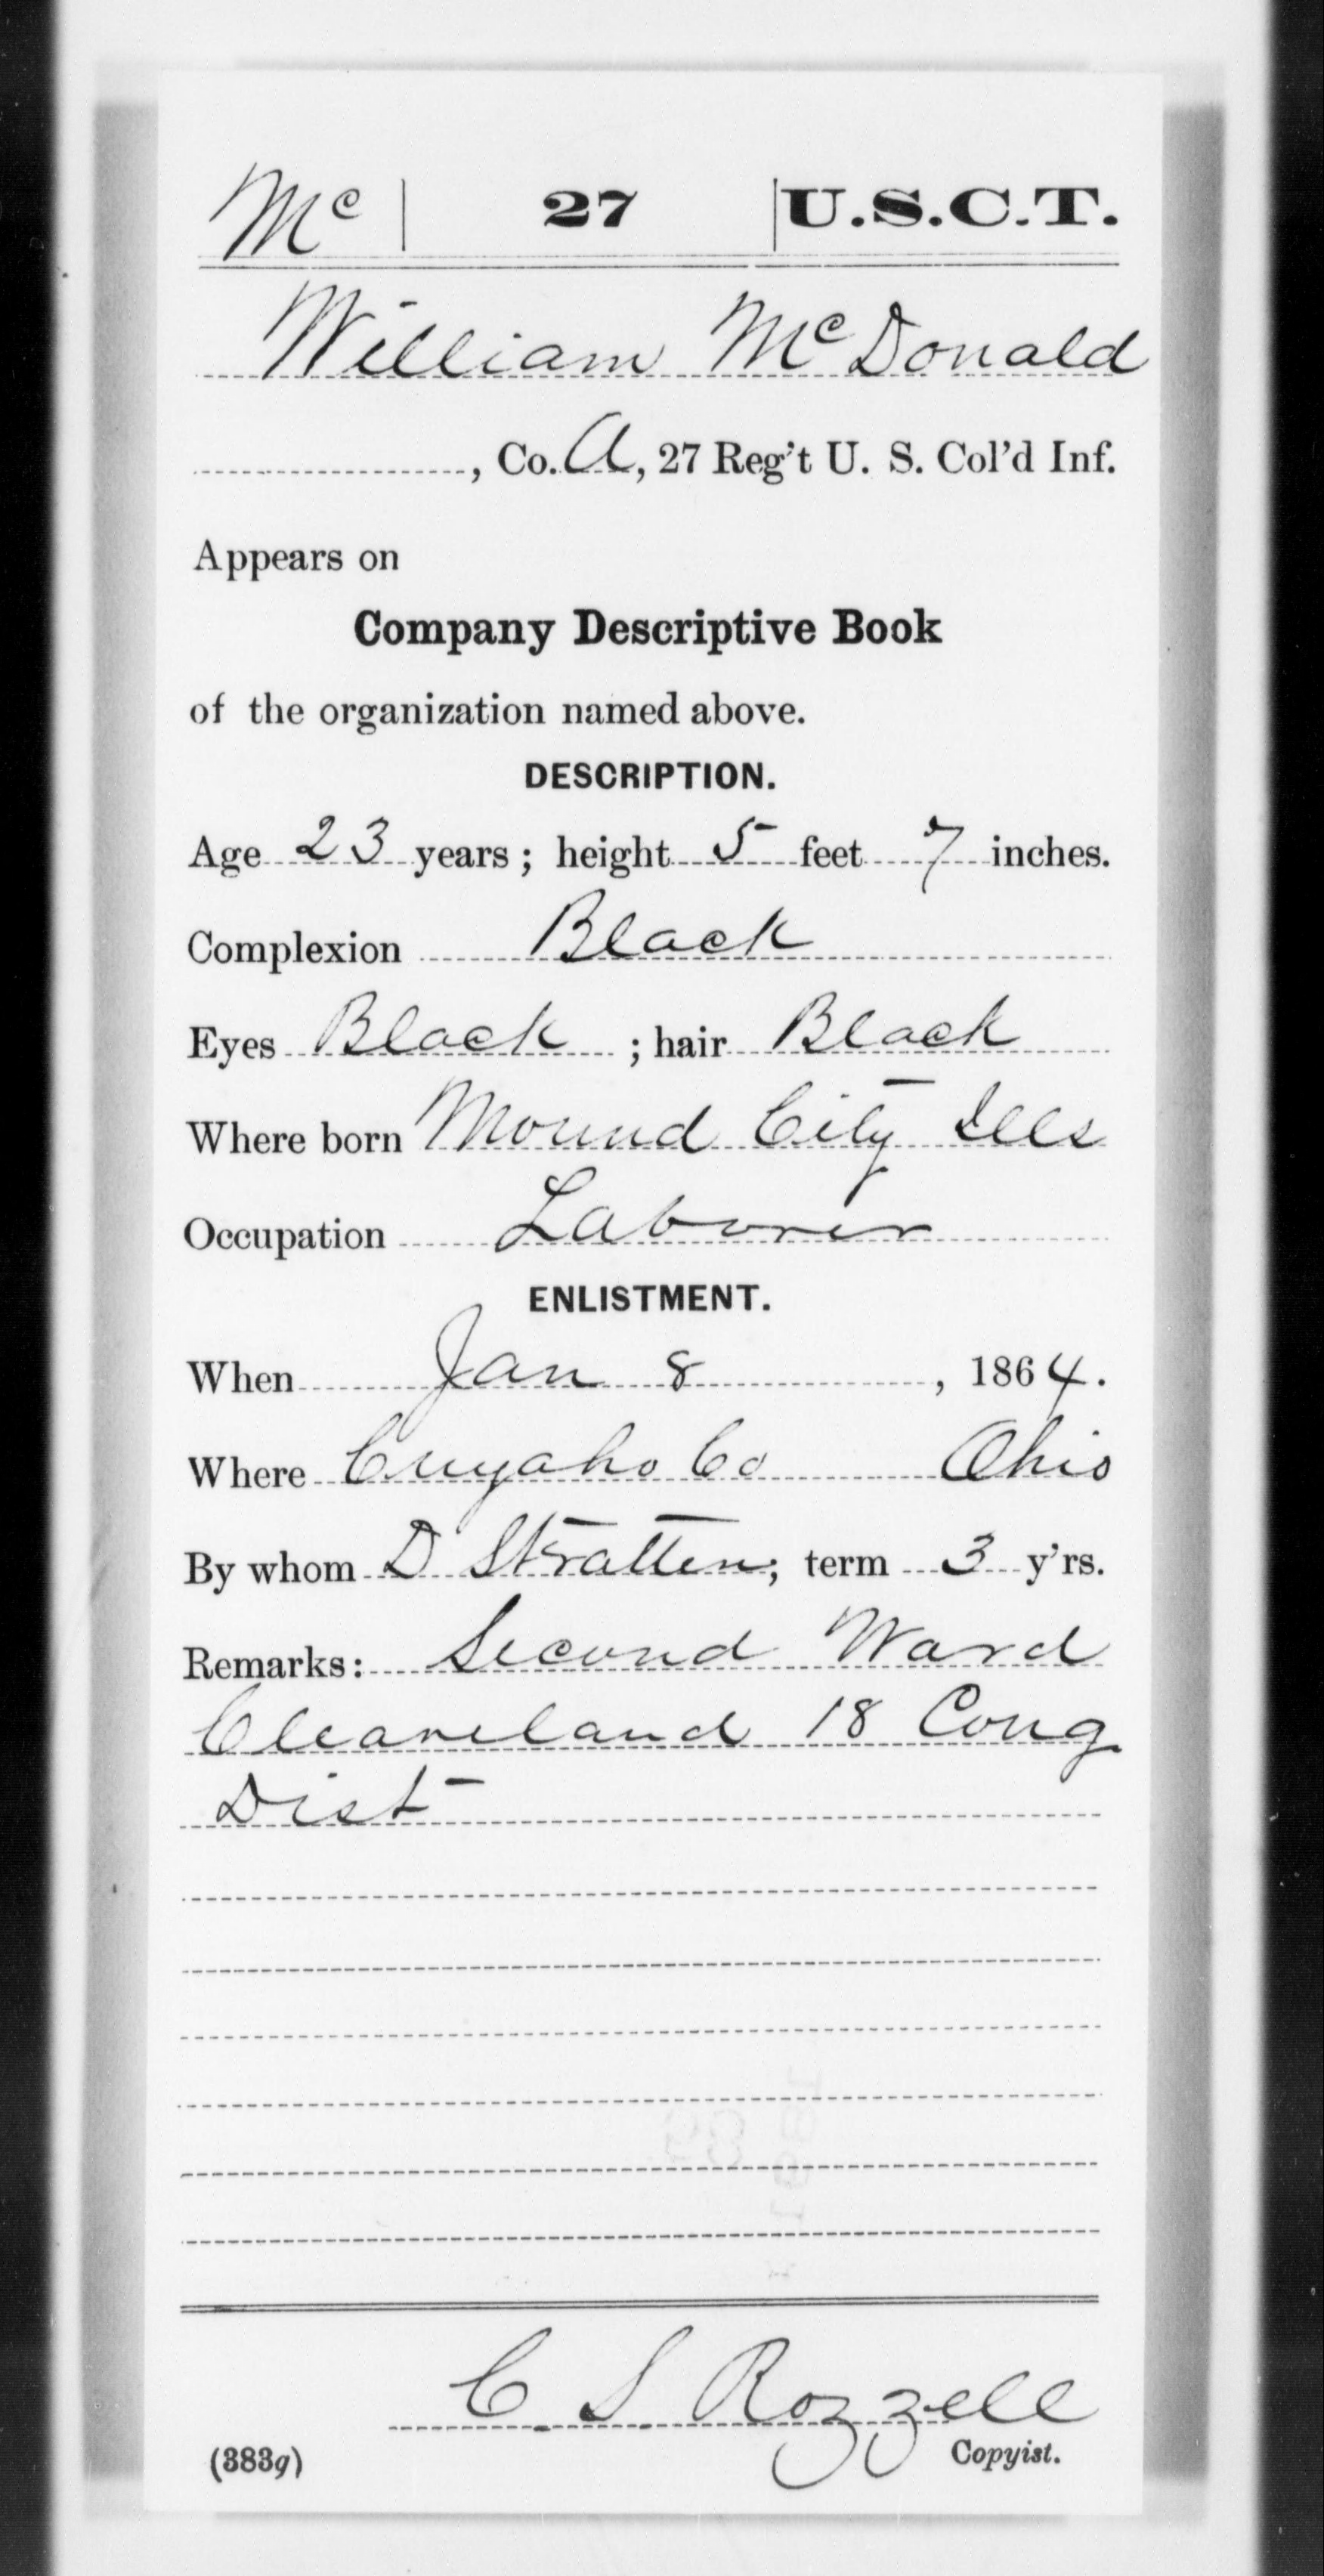 Mc | 27 | U.S.C.T.
William McDonald
, Co. A, 27 Reg't U. S. Col'd Inf.
Appears on
Company Descriptive Book
of the organization named above.
DESCRIPTION.
Age 23 years; height 5 feet 7 inches.
Complexion Black
Eyes Black ; hair Black
Where born Mound City Ills
Occupation Laborer
ENLISTMENT.
When Jan 8, 1864.
Where Cuyaho Co Ohio
By whom D Stratten; term 3 y'rs.
Remarks: Second Ward
Cleaveland 18 Cong
Dist
C. S. Rozzell
(383g) Copyist.